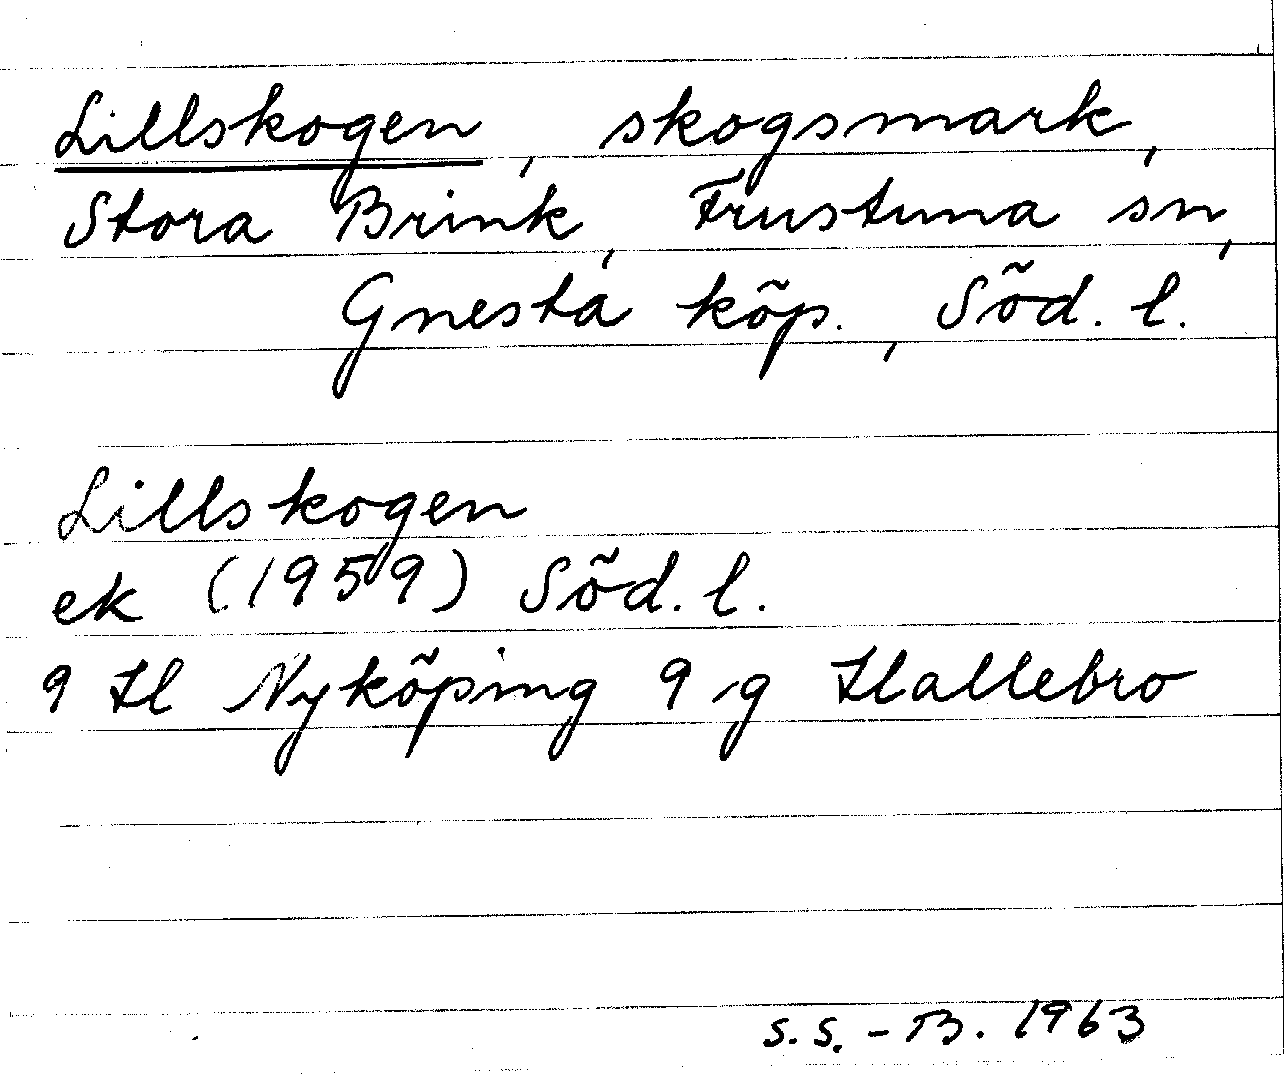 Lillskogen, skogsmark,
Stora Brink, Frustuna sn,
Gnesta köp., Söd. l.
Lillskogen
ek (1959) Söd. l.
9 H Nyköping 9 g Hallebro
S.S.-B. 1963